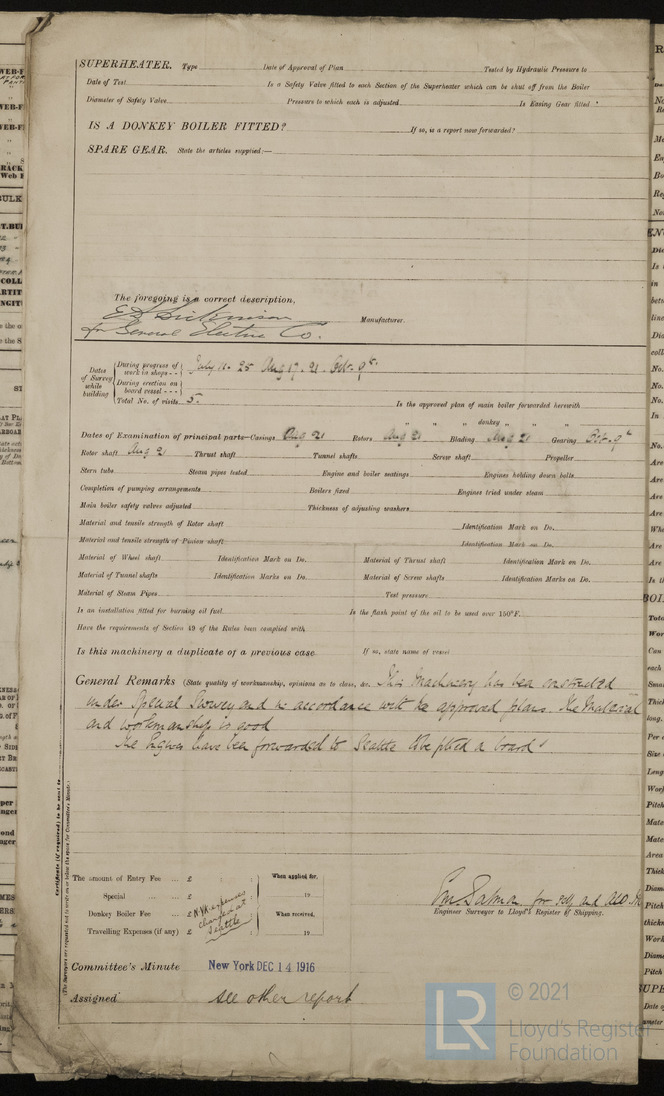 SUPERHEATER. Type Date of Approval of Plan Tested by Hydraulic Pressure to
Date of Test Is a Safety Valve fitted to each Section of the Superheater which can be shut off from the Boiler
Diameter of Safety Valve Pressure to which each is adjusted Is Easing Gear fitted ?
IS A DONKEY BOILER FITTED? If so, is a report now forwarded?
SPARE GEAR. State the articles supplied:—
The foregoing is a correct description,
Dickinson
for General Electric Co. Manufacturer.
Dates of Survey while building
During progress of work in shops - - July 11. 25 Aug 17. 21. Oct. 9th
During erection on board vessel - - -
Total No. of visits 5. Is the approved plan of main boiler forwarded herewith
" " donkey " " "
Dates of Examination of principal parts—Casings Aug 21 Rotors Aug 21 Blading Aug 21 Gearing Oct. 9th
Rotor shaft Aug 21 Thrust shaft Tunnel shafts Screw shaft Propeller
Stern tube Steam pipes tested Engine and boiler seatings Engines holding down bolts
Completion of pumping arrangements Boilers fixed Engines tried under steam
Main boiler safety valves adjusted Thickness of adjusting washers
Material and tensile strength of Rotor shaft Identification Mark on Do.
Material and tensile strength of Pinion shaft Identification Mark on Do.
Material of Wheel shaft Identification Mark on Do. Material of Thrust shaft Identification Mark on Do.
Material of Tunnel shafts Identification Marks on Do. Material of Screw shafts Identification Marks on Do.
Material of Steam Pipes Test pressure
Is an installation fitted for burning oil fuel Is the flash point of the oil to be used over 150°F.
Have the requirements of Section 49 of the Rules been complied with
Is this machinery a duplicate of a previous case If so, state name of vessel
General Remarks (State quality of workmanship, opinions as to class, &c. This Machinery has been constructed
under Special Survey and in accordance with the approved plans. The Material
and workmanship is good
The Engines have been forwarded to Seattle to be fitted on board
Certificate (if required) to be sent to
(The Surveyors are requested not to write on or below the space for Committee's Minute.)
The amount of Entry Fee ... £ : : When applied for,
Special ... ... £ 19
Donkey Boiler Fee ... £ When received,
Travelling Expenses (if any) £ : 19
N.YK expenses
charged at
Seattle
Salmon for self and
Engineer Surveyor to Lloyd's Register of Shipping.
Committee's Minute New York DEC 14 1916
Assigned see other report
LR © 2021
Lloyd's Register
Foundation